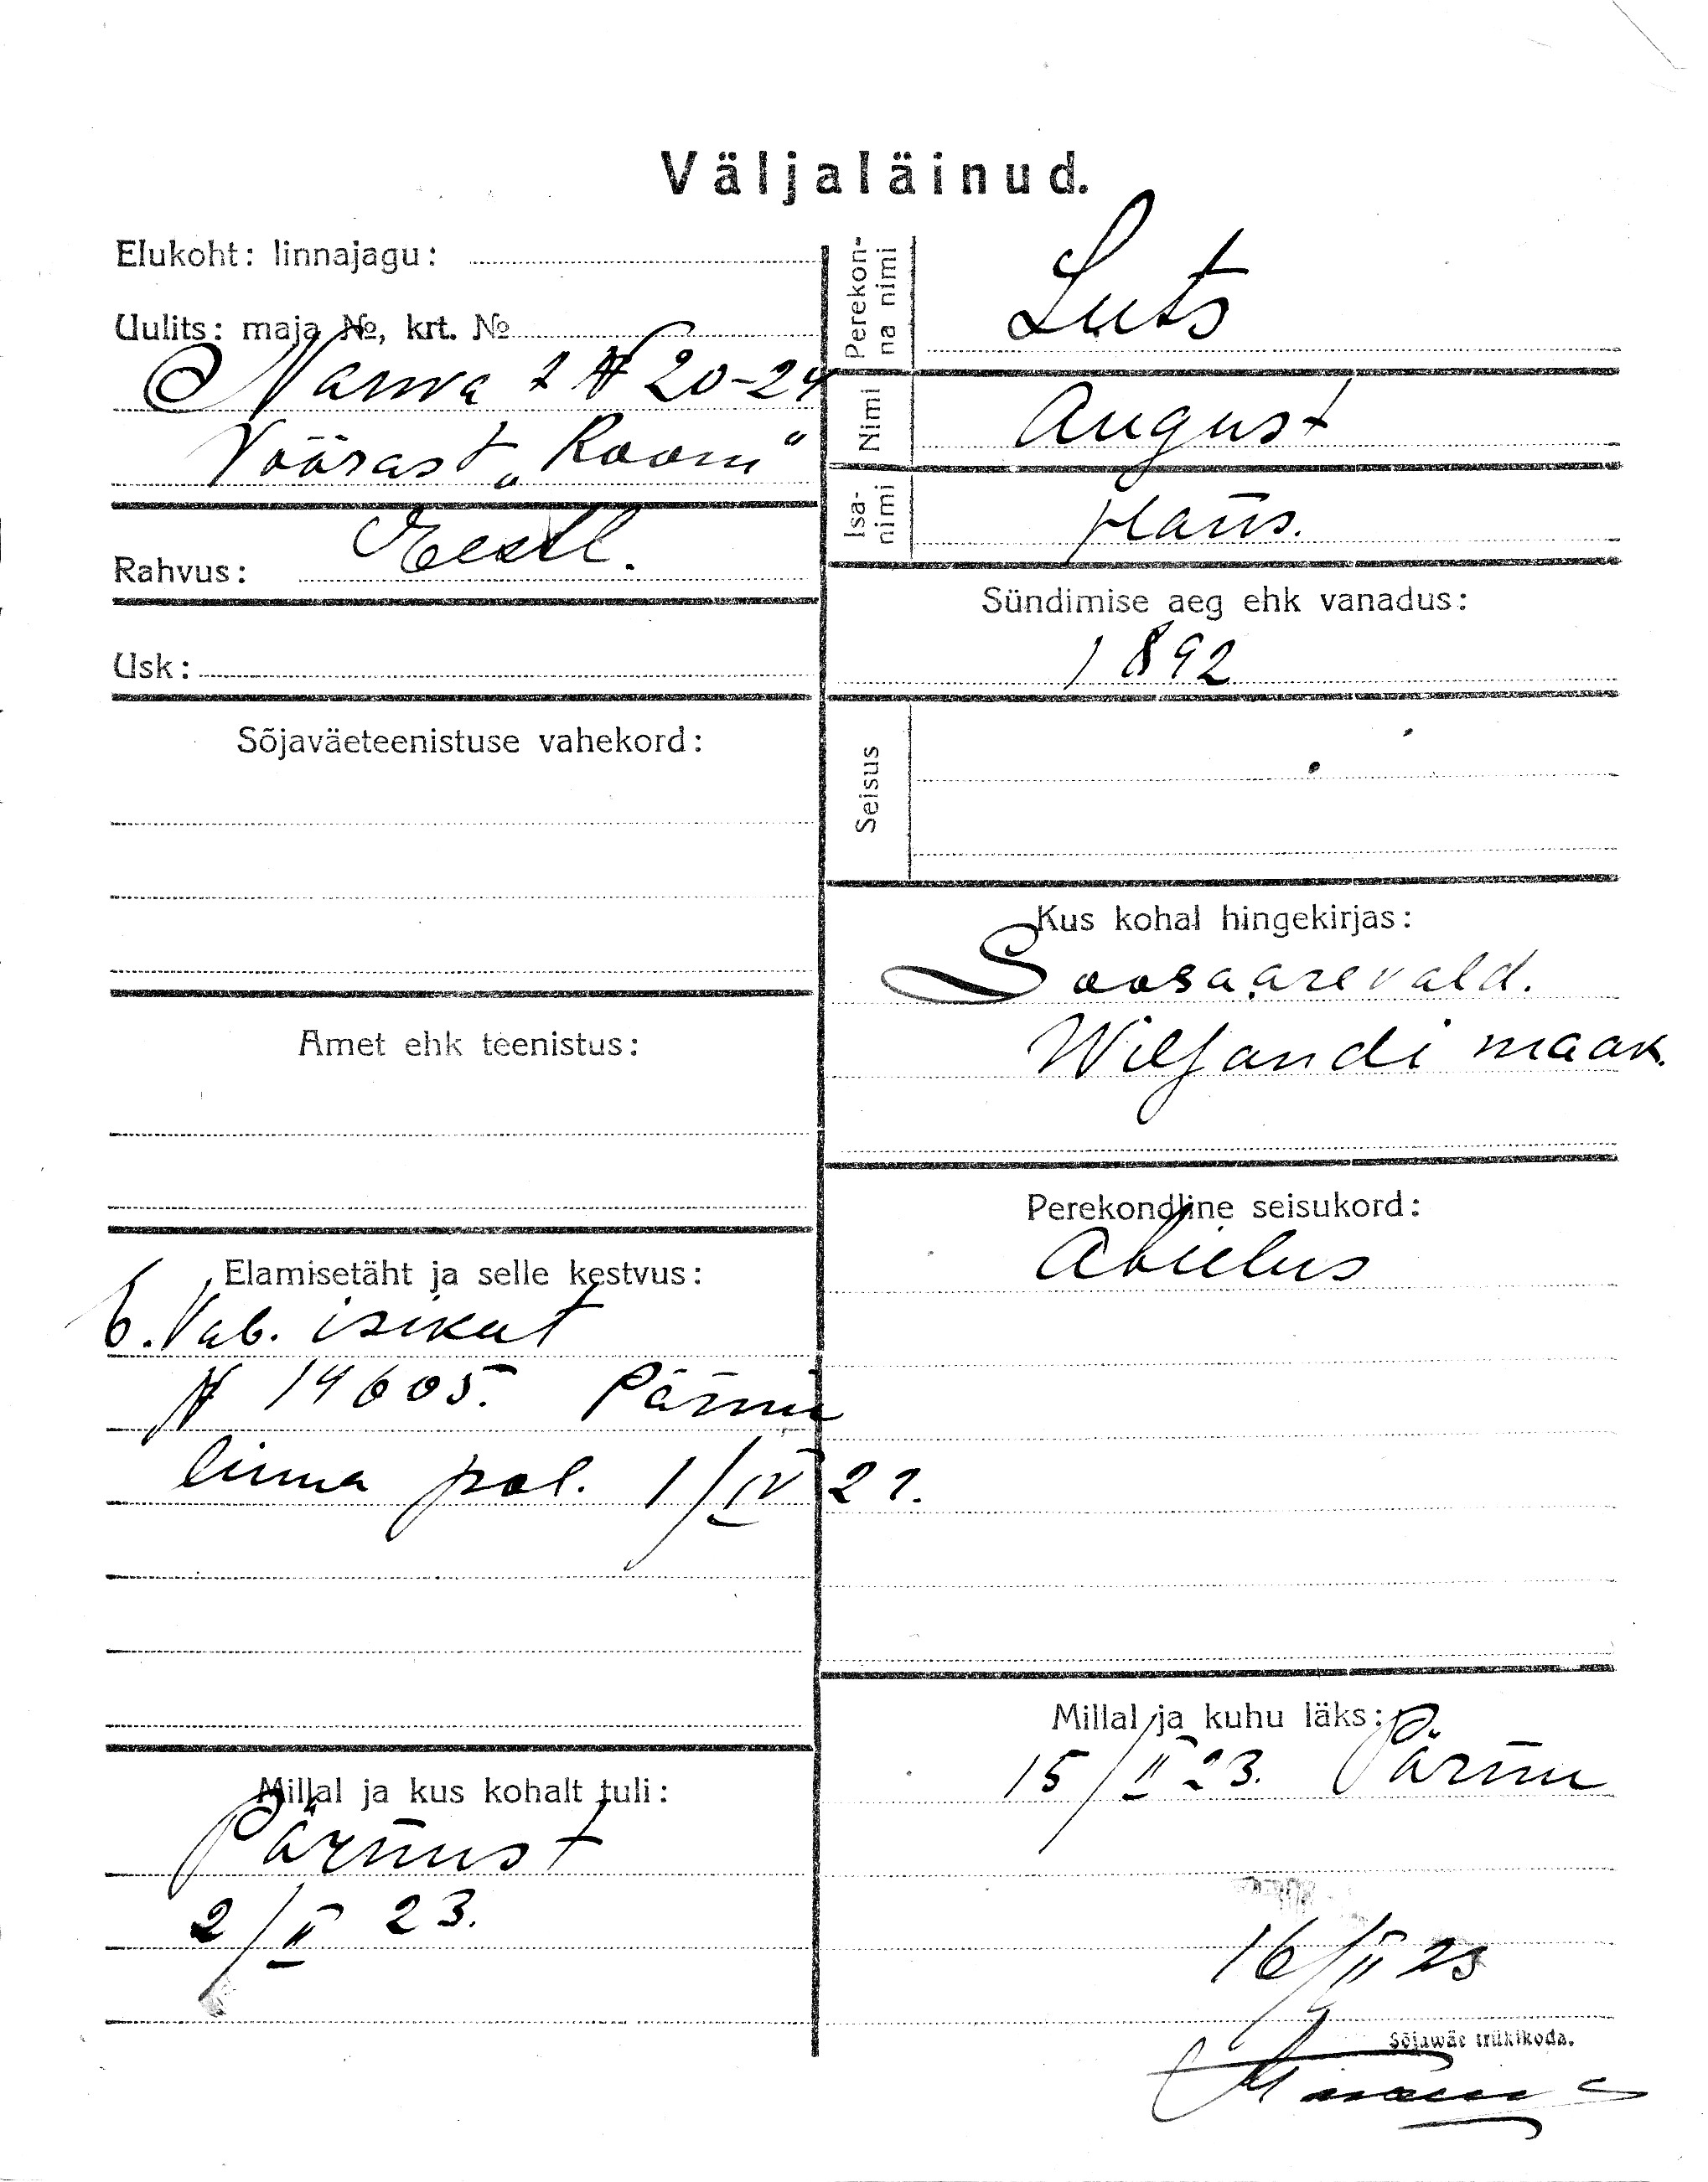 Väljaläinud.
Elukoht: linnajagu:
Uulits: maja №, krt. №
Narva t № 20-24
Võõrast. „Room“
Rahvus: Eestl.
Usk:
Sõjaväeteenistuse vahekord:
Amet ehk teenistus:
Elamisetäht ja selle kestvus:
E. Vab. isikut
№ 14605. Pärnu
linna pol. 1/IV 21.
Millal ja kus kohalt tuli:
Pärnust
2/II 23.
Perekonna nimi Luts
Nimi August
Isanimi Hans.
Sündimise aeg ehk vanadus:
1892
Seisus
Kus kohal hingekirjas:
Soosaare vald.
Wiljandi maak.
Perekondline seisukord:
Abielus
Millal ja kuhu läks:
15/II 23. Pärnu
16/II 23
Sõjawäe trükikoda.